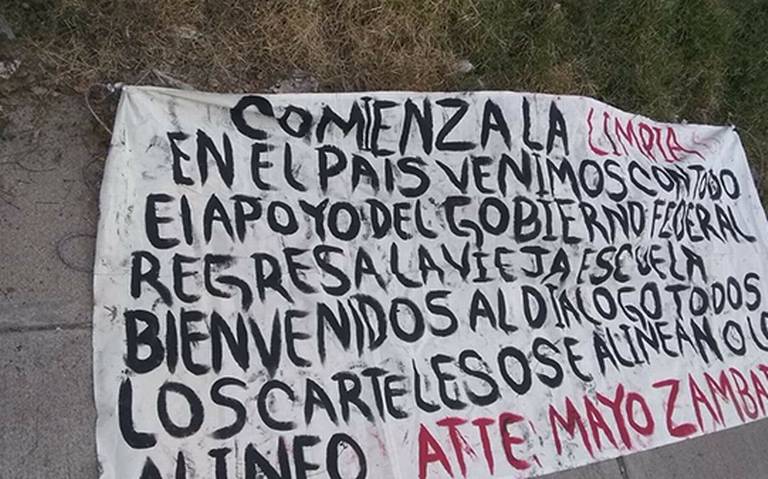 COMIENZA LA LIMPIA
EN EL PAIS VENIMOS CON TODO
El APOYO DEL GOBIERNO FEDERAL
REGRESA LA VIEJA ESCUELA
BIENVENIDOS AL DIALOGO TODOS
LOS CARTELES O SE ALINEAN O LO
ALINEO ATTE. MAYO ZAMBA